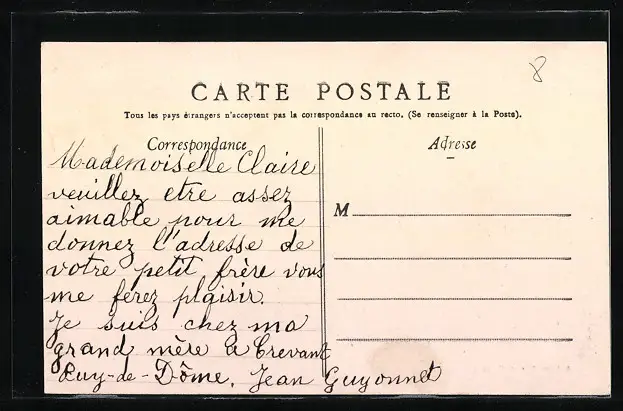 8
CARTE POSTALE
Tous les pays étrangers n'acceptent pas la correspondance au recto. (Se renseigner à la Poste).
Correspondance
Adresse
Mademoiselle Claire
veuillez etre assez
aimable pour me
donnez l'adresse de
votre petit frère vous
me ferez plaisir.
Je suis chez ma
grand mère à Crevant
Puy-de-Dôme. Jean Guyonnet
M